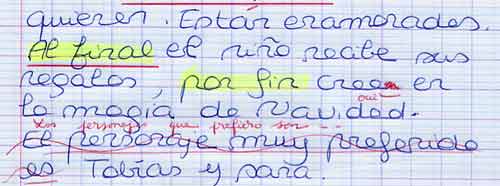 quieren. Están enamorados.
Al final el niño recibe sus
regalos, por fin creen en
oui
la magia de Navidad.
Los personajes que prefiero son ...
El personaje muy preferido
es Tobías y Sara.